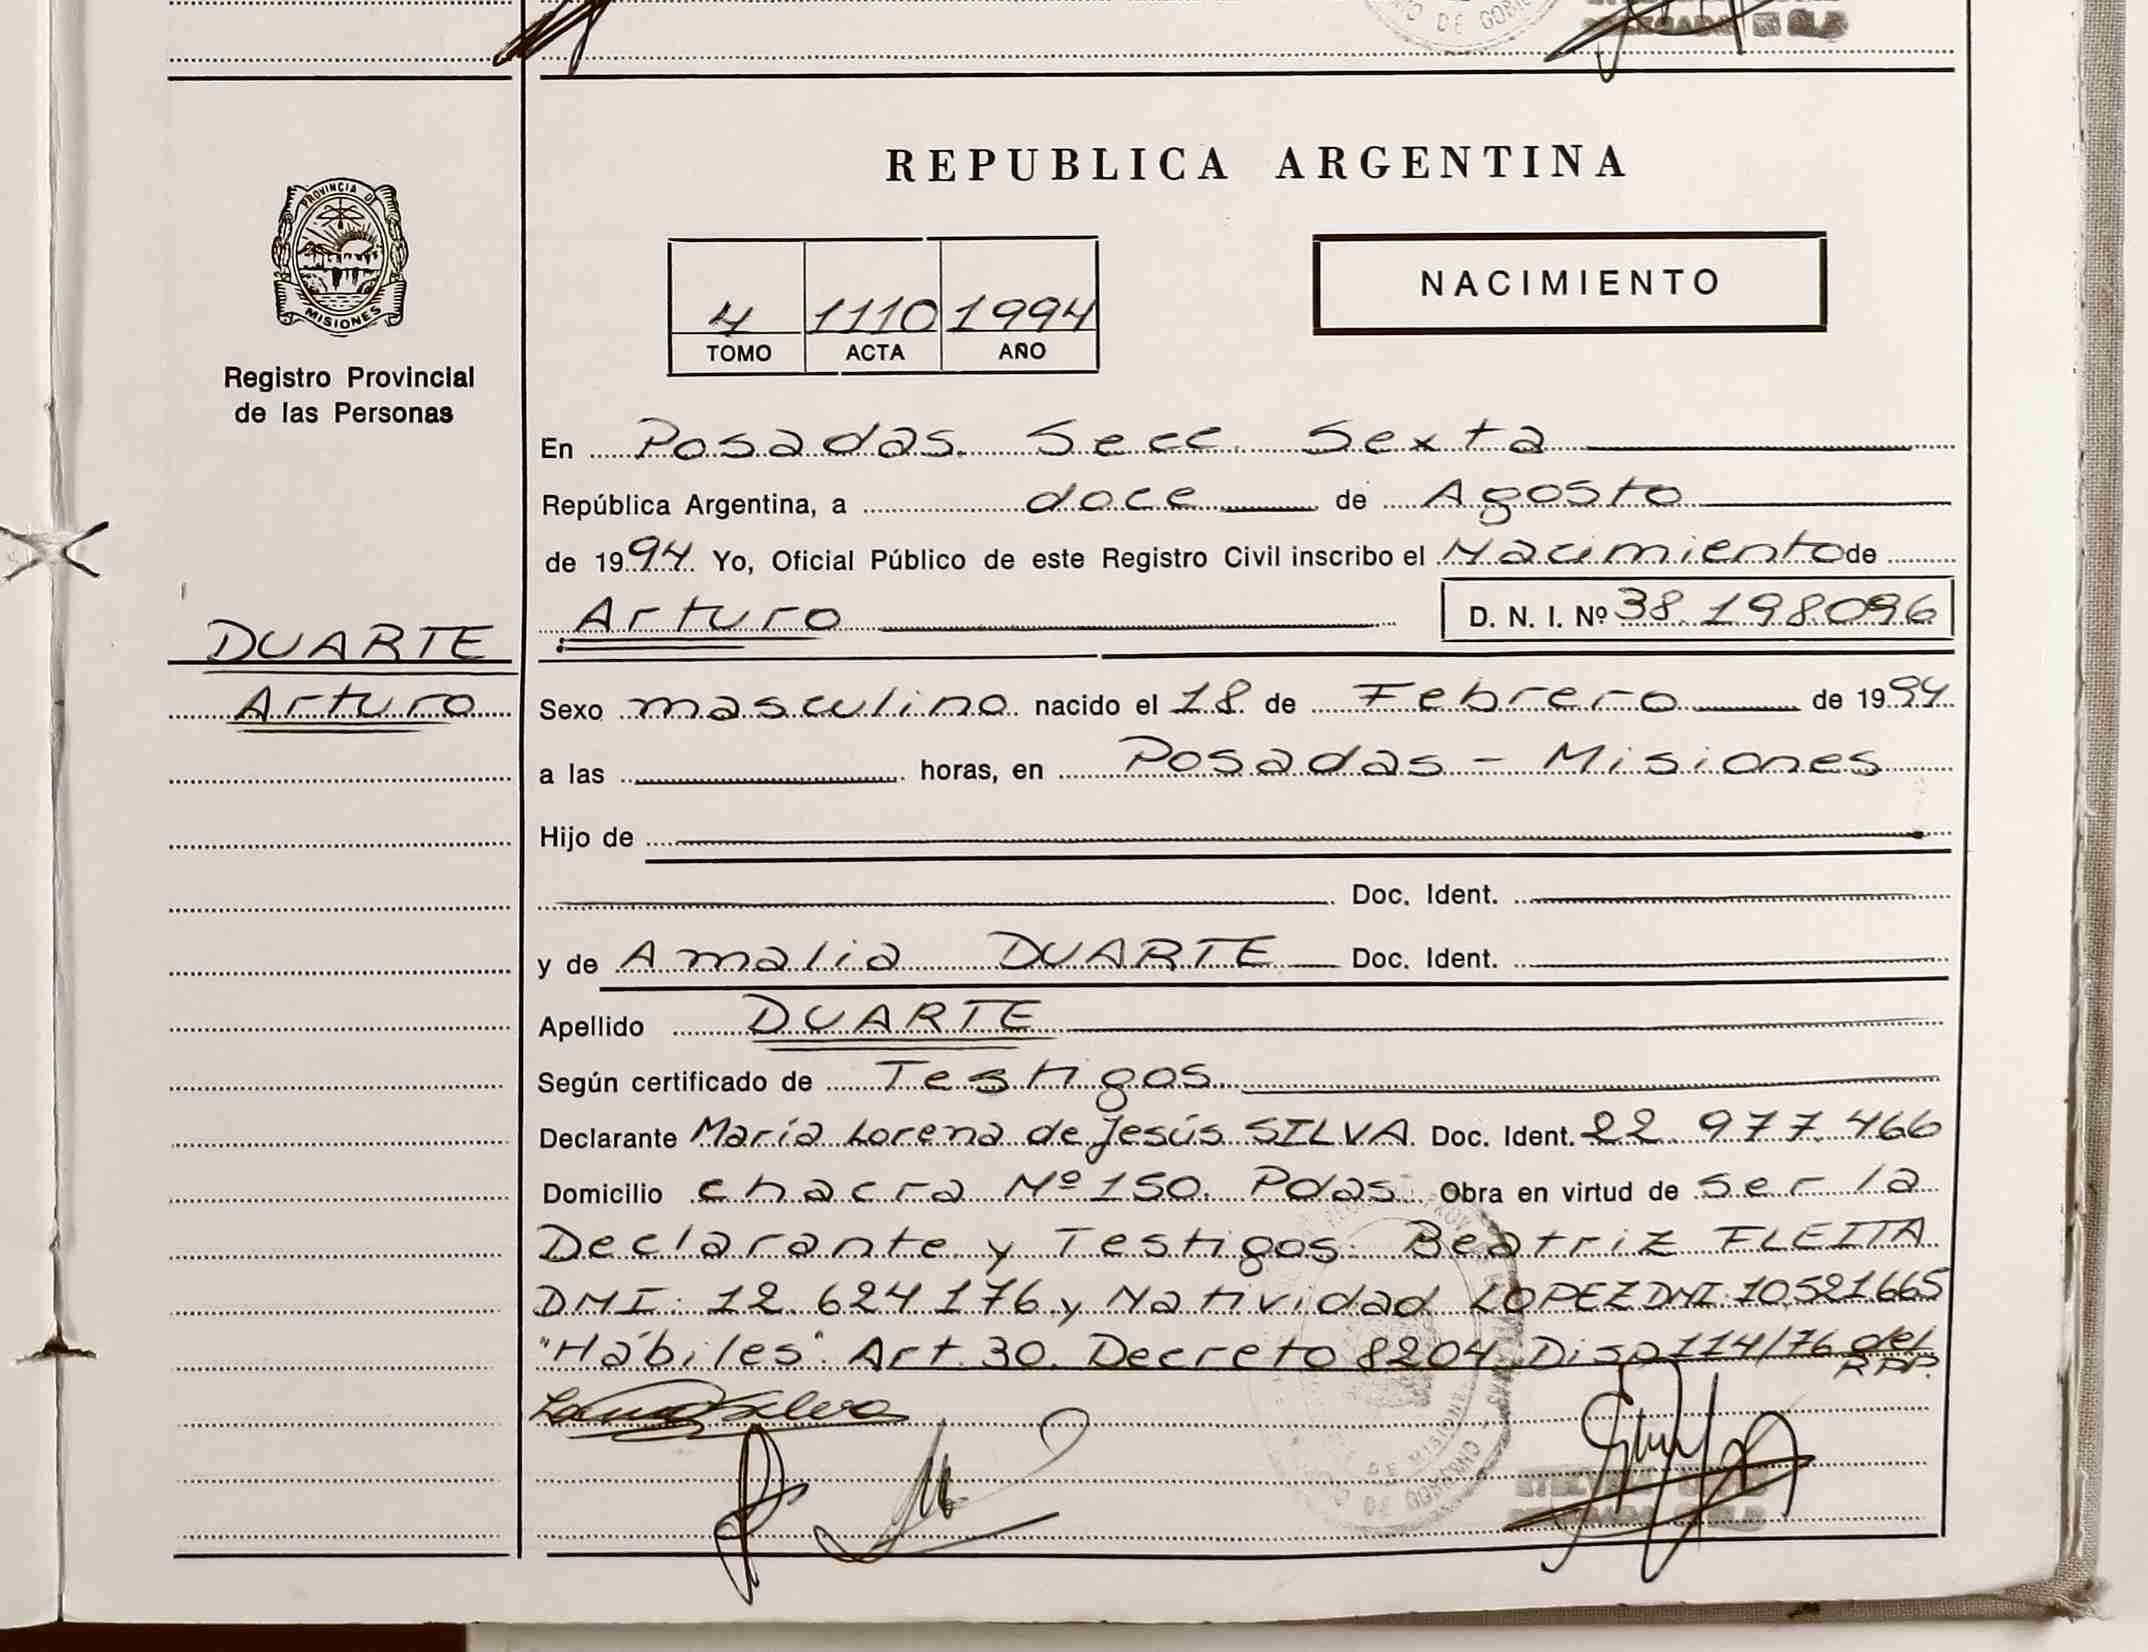 DE GOBIE
REPUBLICA ARGENTINA
PROVINCIA DE
MISIONES
Registro Provincial
de las Personas
4 1110 1994
TOMO ACTA AÑO
NACIMIENTO
En Posadas. Secc. Sexta
República Argentina, a doce de Agosto
de 1994 Yo, Oficial Público de este Registro Civil inscribo el Nacimiento de
Arturo D. N. I. Nº 38.198.096
DUARTE
Arturo
Sexo masculino nacido el 18 de Febrero de 1994
a las horas, en Posadas - Misiones
Hijo de
Doc. Ident.
y de Amalia DUARTE Doc. Ident.
Apellido DUARTE
Según certificado de Testigos
Declarante María Lorena de Jesús SILVA. Doc. Ident. 22.977.466
Domicilio chacra Nº 150. Pdas. Obra en virtud de ser la
Declarante y Testigos: Beatriz FLEITA
DNI: 12.624.176 y Natividad LOPEZ DNI 10.521.665
"Hábiles" Art. 30. Decreto 8204 Disp 114/76 del
RPP.
DE MISIONES
DE GOBIERNO